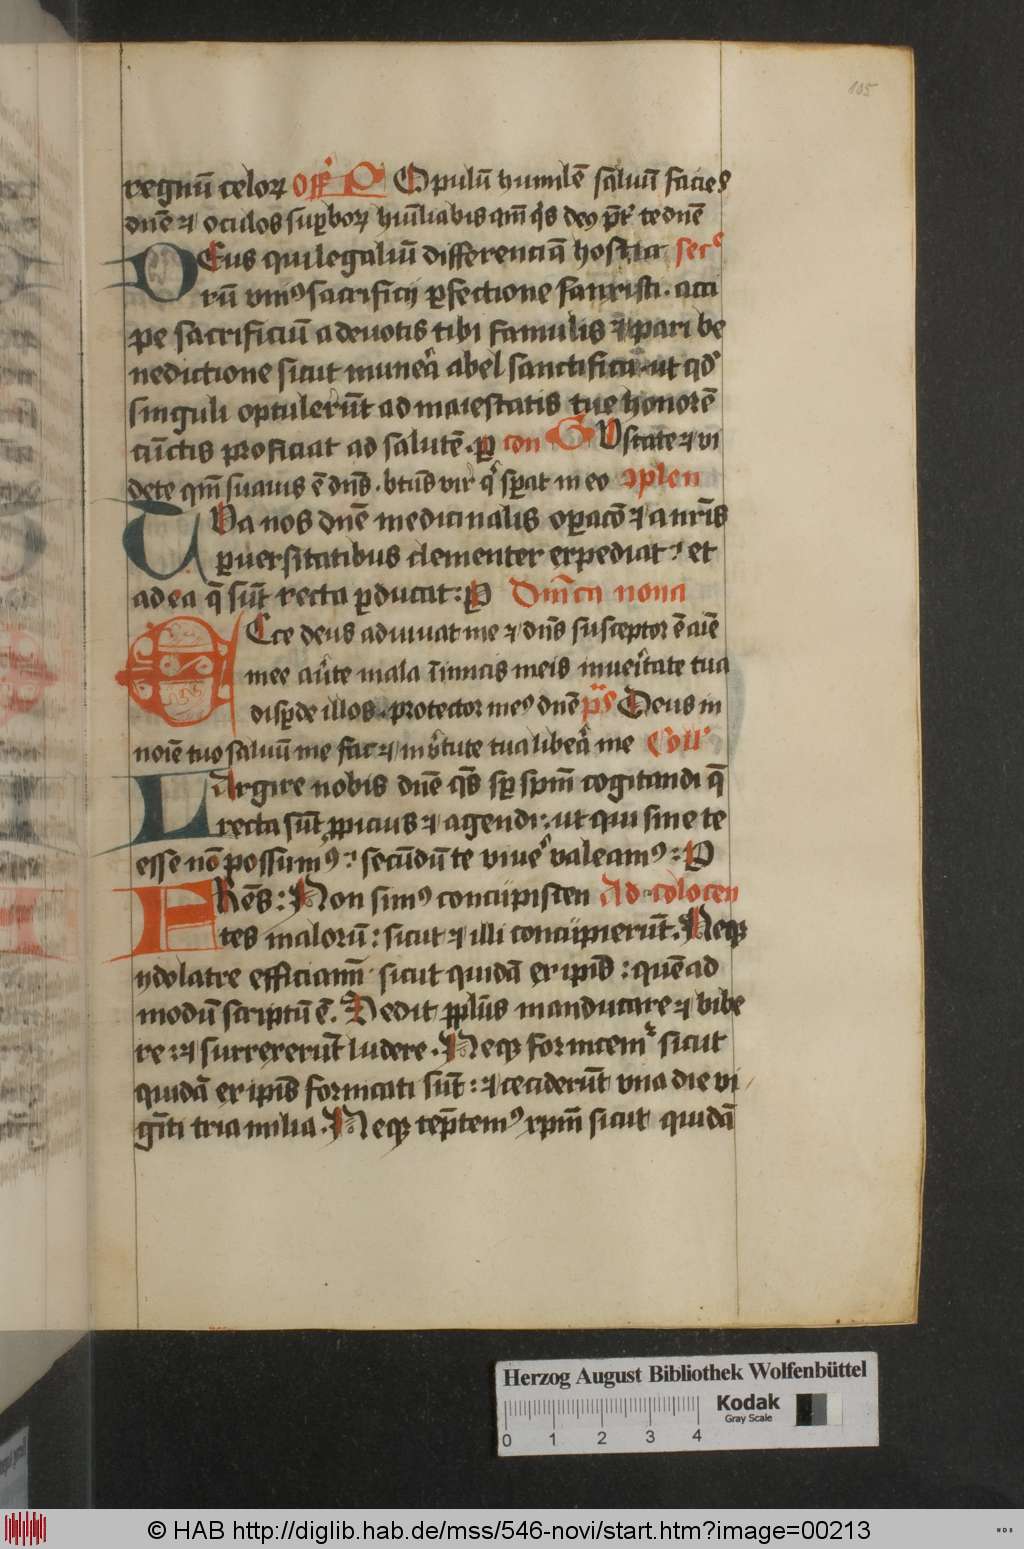 105
regnū celoꝝ Off' P Opulū humilē saluū facies
dnē ⁊ oculos suꝑboꝝ hūiliabis qm̄ q's deꝰ p̄t' te dnē
DEus qui legaliū differenciā hostia secᵉ
rū vniꝰ sacrificij ꝑfectione sanxisti · acci
pe sacrificiū a deuotis tibi famulis ⁊ pari be
nedictione sicut munea̓ abel sanctifica · ut qd̓
singuli optulerūt ad maiestatis tue honorē
cūctis proficiat ad salutē · ꝑ con GUstate ⁊ vi
dete qm̄ suauis ē dn̄s · btūs vir q' sꝑat in eo ꝯplen
TUa nos dnē medicinalis oꝑacō ⁊ a nr̄is
ꝑuersitatibus clementer expediat : et
ad ea q̄ sūt recta ꝑducat : P Dnīca nona
ECce deus adiuuat me ⁊ dn̄s susceptor ē aīe
mee au̓te mala īimicis meis in ueri̓tate tua
disꝑde illos · protector meꝰ dnē ps̄ Deus in
noīe tuo saluū me fac ⁊ in v̓tute tua libea̓ me Coll'
LArgire nobis dnē q̄s sꝑ spm̄ cogitandi q̄
recta sūt ꝓpicius ⁊ agendi : ut qui sine te
esse nō possumꝰ : secūdū te viue' valeamꝰ : P
FRēs : Non simꝰ concupiscen Ad colocen
tes malorū : sicut ⁊ illi concupierūt. Neqꝫ
ydolatre efficiamī sicut quidā ex ipīs : quēad
modū scriptū ē. Sedit pplūs manducare ⁊ bibe
re : ⁊ surrexerūt ludere. Neqꝫ fornicemr̓ sicut
quidā ex ipīs fornicati sūt : ⁊ ceciderūt vna die vi
gīti tria milia. Neqꝫ tēptemꝰ xpm̄ sicut quidā
Herzog August Bibliothek Wolfenbüttel
Kodak
Gray Scale
0 1 2 3 4
© HAB http://diglib.hab.de/mss/546-novi/start.htm?image=00213